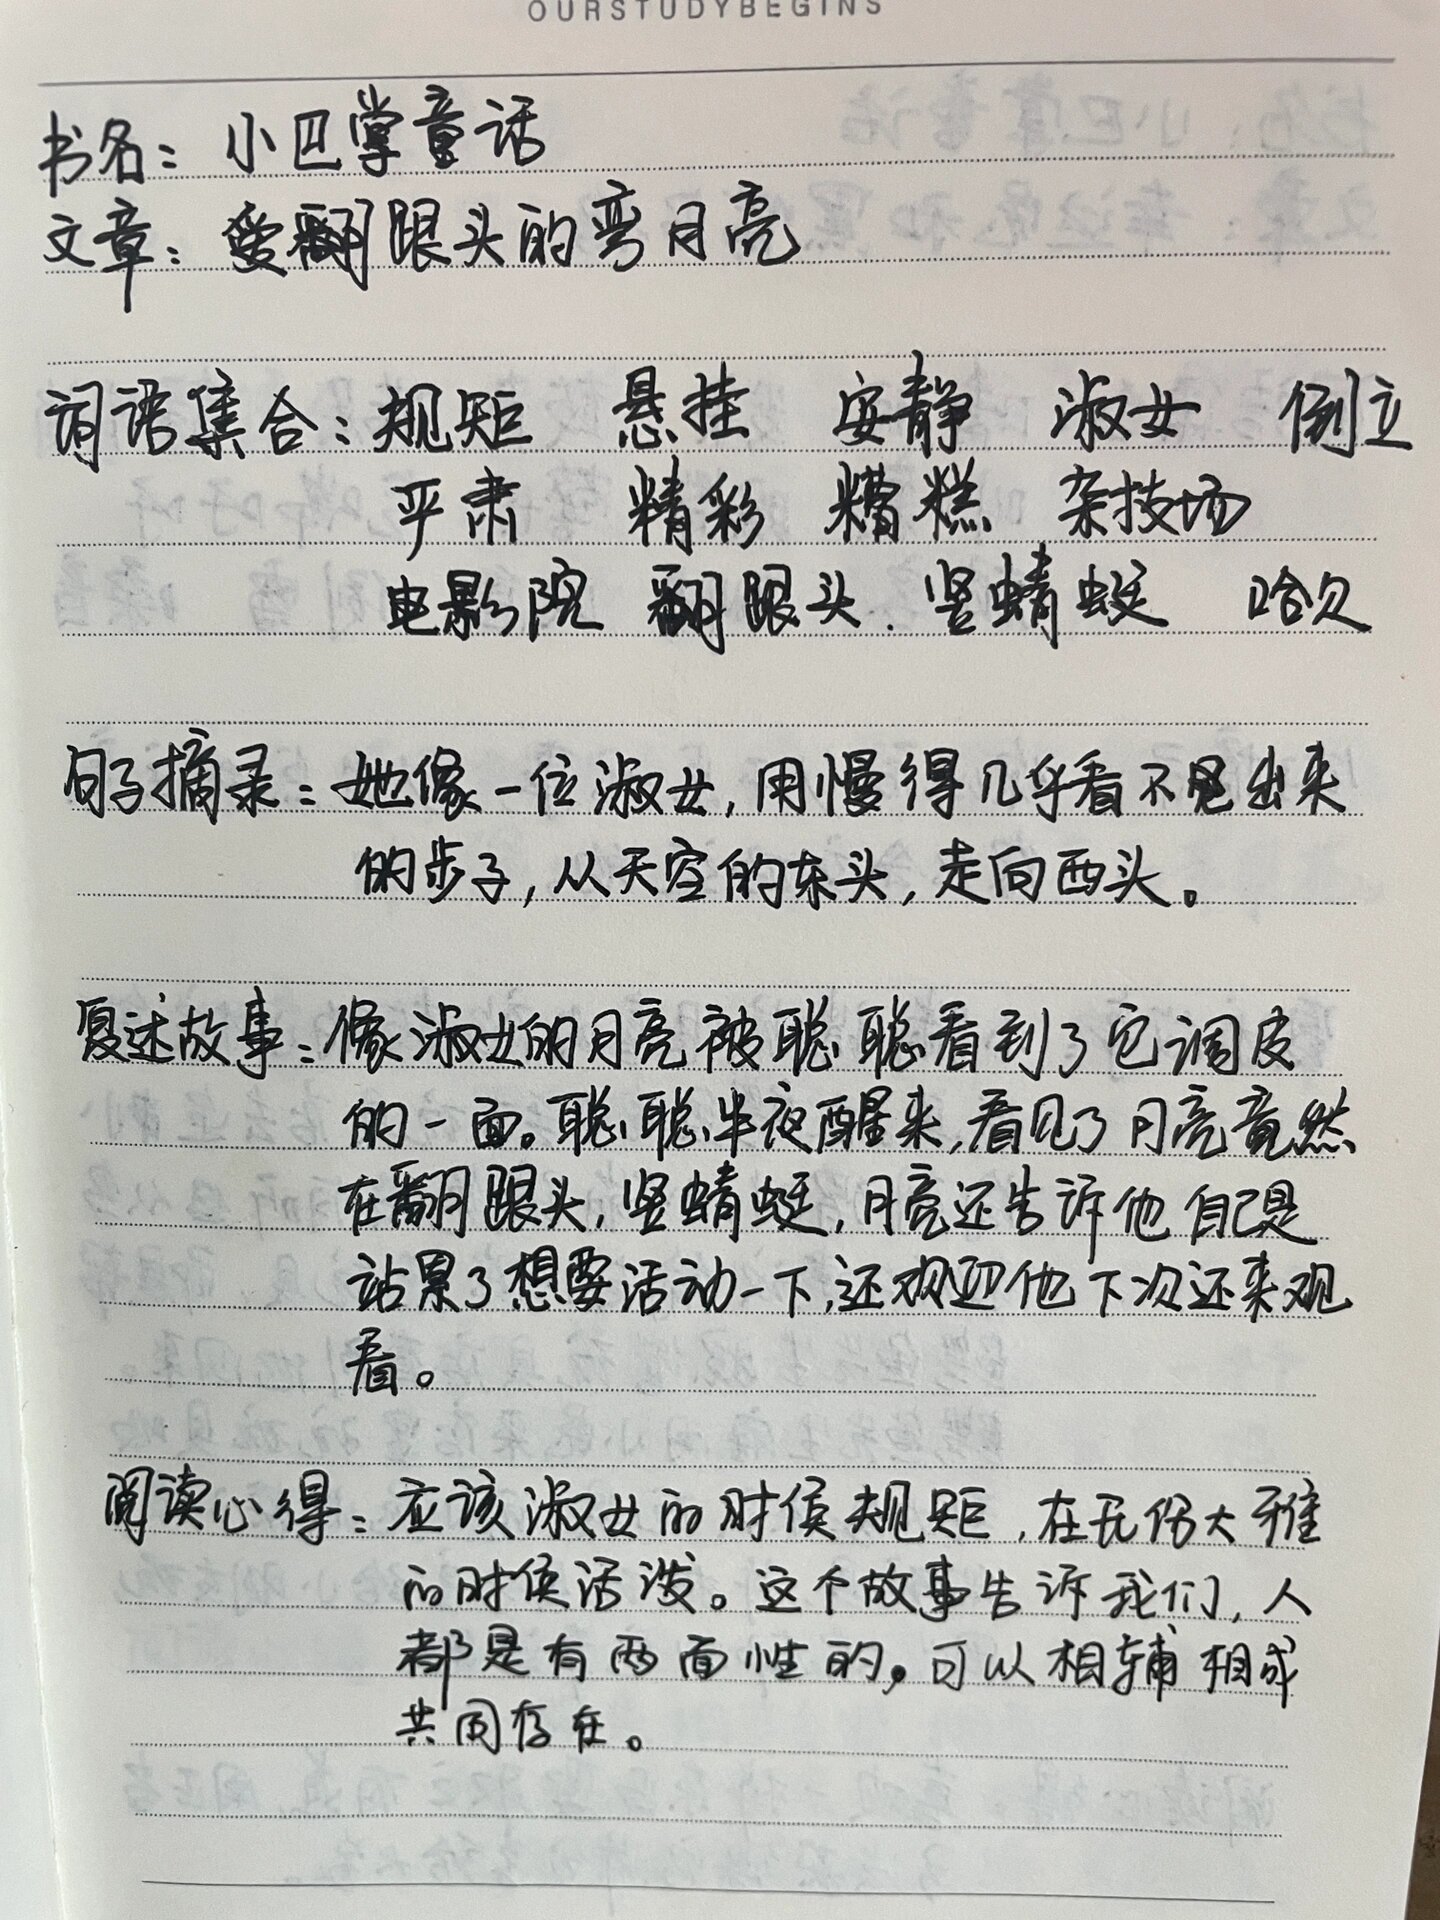 OURSTUDYBEGINS
书名：小巴掌童话
文章：爱翻跟头的弯月亮
词语集合：规矩 悬挂 安静 淑女 倒立
严肃 精彩 糟糕 杂技场
电影院 翻跟头. 竖蜻蜓 哈欠
句子摘录：她像一位淑女，用慢得几乎看不见出来
的步子，从天空的东头，走向西头。
复述故事：像淑女的月亮被聪聪看到了它调皮
的一面。聪聪半夜醒来，看见了月亮竟然
在翻跟头，竖蜻蜓，月亮还告诉他自己是
站累了想要活动一下，还欢迎他下次还来观
看。
阅读心得：应该淑女的时候规矩，在无伤大雅
的时候活泼。这个故事告诉我们，人
都是有两面性的。可以相辅相成
共同存在。